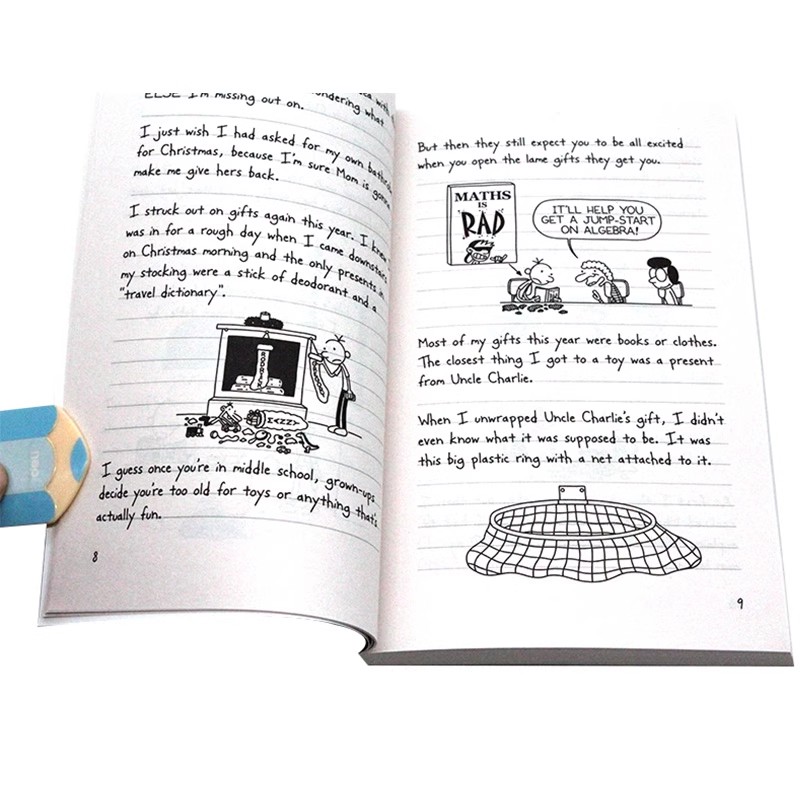 ELSE I'm missing out on.
I just wish I had asked for my own
for Christmas, because I'm sure Mom is gonna
make me give hers back.
I struck out on gifts again this year. I knew I
was in for a rough day when I came downstairs
on Christmas morning and the only presents in
my stocking were a stick of deodorant and a
"travel dictionary".
I guess once you're in middle school, grown-ups
decide you're too old for toys or anything that's
actually fun.
8
But then they still expect you to be all excited
when you open the lame gifts they get you.
MATHS
IS
RAD
IT'LL HELP YOU
GET A JUMP-START
ON ALGEBRA!
Most of my gifts this year were books or clothes.
The closest thing I got to a toy was a present
from Uncle Charlie.
When I unwrapped Uncle Charlie's gift, I didn't
even know what it was supposed to be. It was
this big plastic ring with a net attached to it.
9